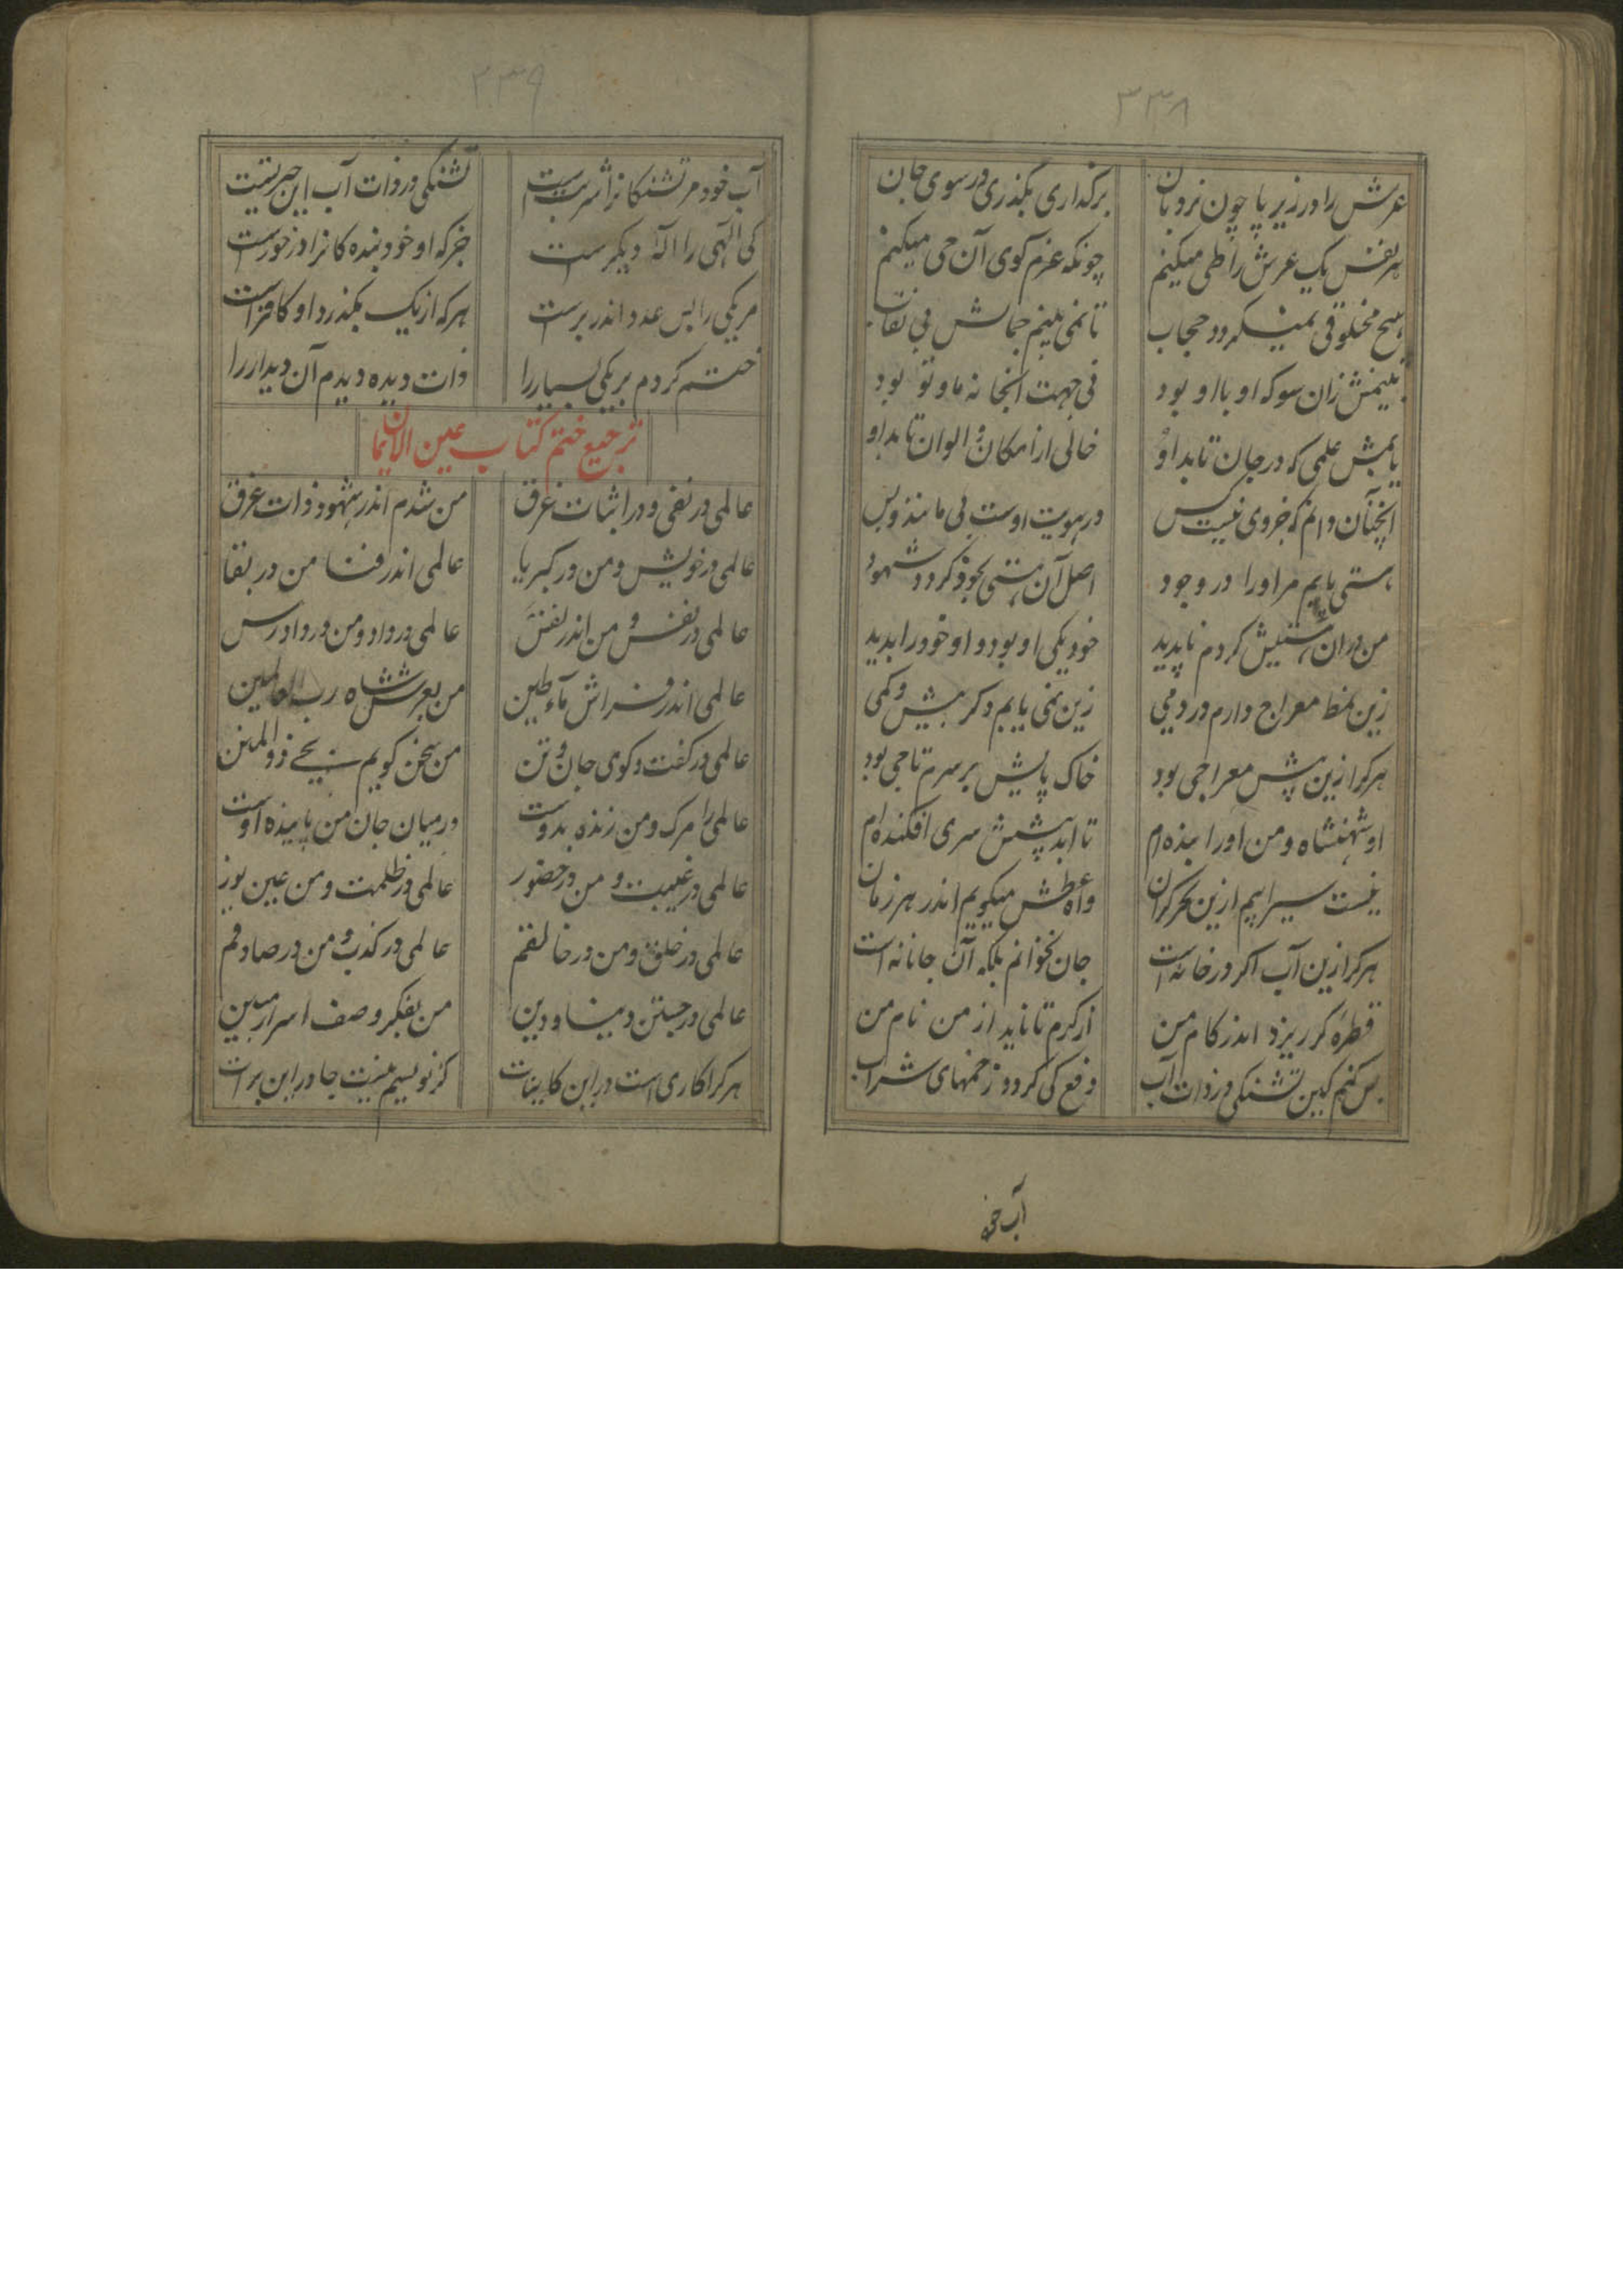 ۳۳۸
عرش را در زیر پا چون نردبان برگذاری بگذری در سوی جان
هر نفس یک عرش را طی میکنم چونکه عزم کوی آن حی میکنم
هیچ مخلوقی نمیگردد حجاب تا نمی بینم جمالش بی نقاب
بینمش زان سو که او با او بود فی جهت آنجا نه ما و تو بود
یابمش علمی که در جان تابد او خالی از امکان و الوان تابد او
آنچنان دانم که جز وی نیست کس در هویت اوست بی مانند و بس
هستی یابم مر او را در وجود اصل آن هستی بخود کردد شهود
من در آن هستیش کردم ناپدید خود یکی او بود و او خود را بدید
زین نمط معراج دارم در دمی زین نمی یابم دکر بیش و کمی
هرکرا زین پیش معراجی بود خاک پایش بر سرم تاجی بود
او شهنشاه و من او را بنده ام تا ابد پیشش سری افکنده ام
نیست سیرابیم ازین بحر کران وا عطش میگویم اندر هر زمان
هرکرا زین آب اگر در خانه است جان نخوانم بلکه آن جانانه است
قطره کر ریزد اندر کام من از کرم تا ناید از من نام من
بس کنم کین تشنکی در ذات آب دفع کی کردد ز خمهای شراب
آب خود
۳۳۹
آب خود مر تشنکانرا شربتست تشنکی در ذات آب این حیرتست
کی الهی را اله دیکرست جز که او خود بنده کانرا در خورست
مر یکی را بس عدد اندر برست هرکه از یک بگذرد او کافرست
ختم کردم بر یکی بسیار را ذات دیده دیدم آن دیدار را
ترجیع ختم کتاب عین الایمان
عالمی در نفی و در اثبات غرق من شدم اندر شهود ذات غرق
عالمی در خویش و من در کبریا عالمی اندر فنا من در بقا
عالمی در نفس و من اندر نفس عالمی در داد و من در دادرس
عالمی اندر فراش ماء و طین من بعرش شاه رب العالمین
عالمی در کفت و کوی جان و تن من سخن کویم ز حی ذوالمنن
عالمی را مرک و من زنده بدوست در میان جان من پاینده اوست
عالمی در غیبت و من در حضور عالمی در ظلمت و من عین نور
عالمی در خلق و من در خالقم عالمی در کذب و من در صادقم
عالمی در جستن دنیا و دین من بفکر وصف اسرار مبین
هرکرا کاری است در این کاینات کر نویسیم نیست جا در این برات